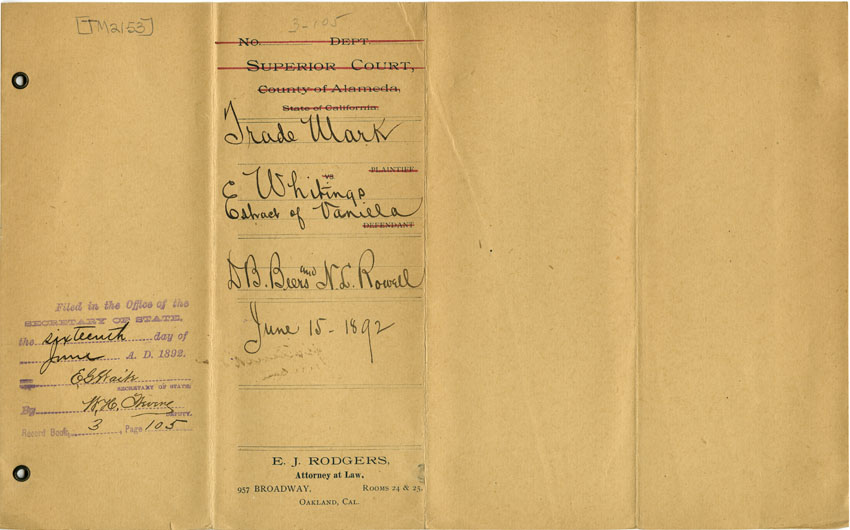 [TM2153]
3-105
No. DEPT.
SUPERIOR COURT,
County of Alameda,
State of California.
Trade Mark
PLAINTIFF
VS
E Whitings
Extract of Vanilla
DEFENDANT
D B. Beers and N. L. Rowell
June 15 - 1892
E. J. RODGERS,
Attorney at Law,
957 BROADWAY. ROOMS 24 & 25.
OAKLAND, CAL.
Filed in the Office of the
SECRETARY OF STATE,
the sixteenth day of
June A. D. 1892.
E. G. Waite
SECRETARY OF STATE
By W. H.
DEPUTY.
Record Book 3, Page 105